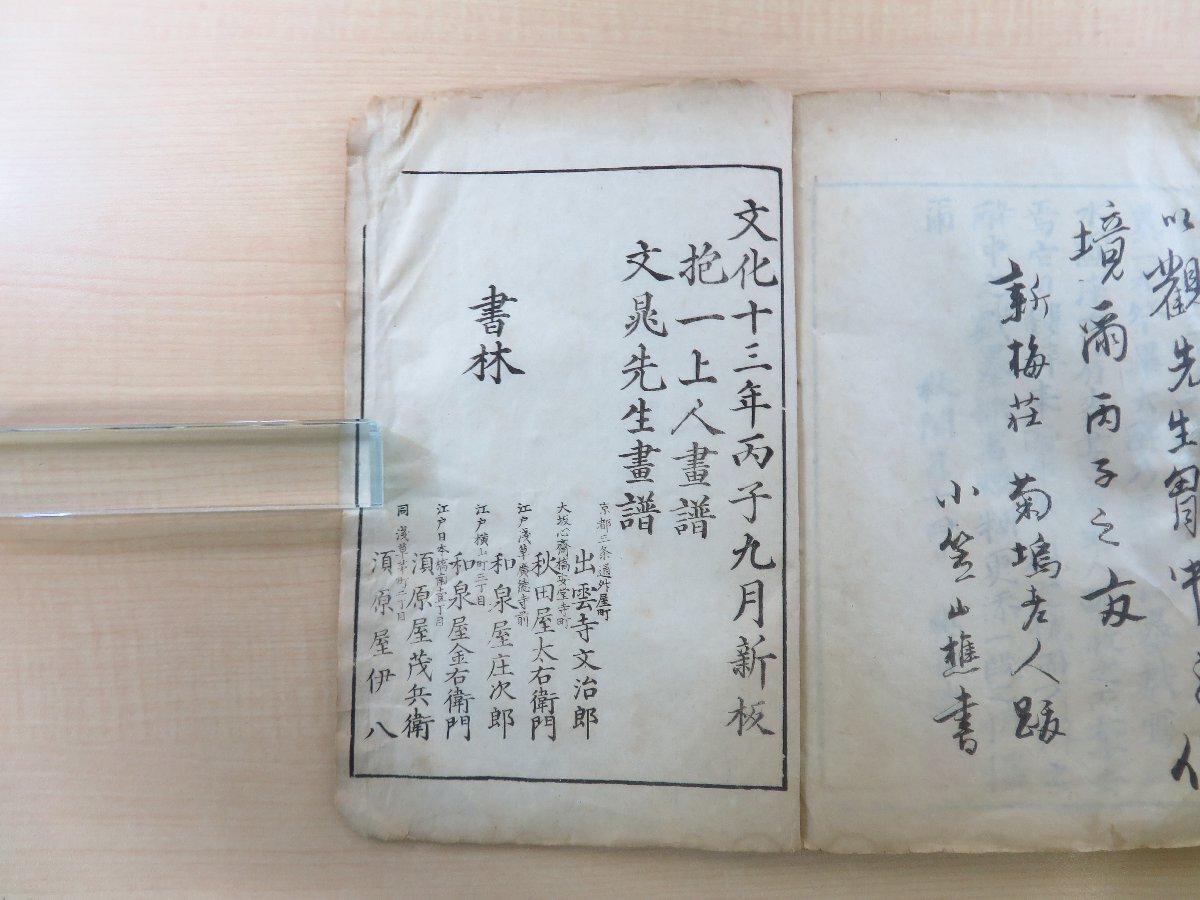 以觀先生胃中
境爾丙子之
新梅莊 菊塢老人跋
小笠山樵書
文化十三年丙子九月新板
抱一上人畫譜
文晁先生畫譜
書林
京都三条通舛屋町
出雲寺文治郎
大坂心斎橋安堂寺町
秋田屋太右衛門
江戸浅草廣徳寺前
和泉屋庄次郎
江戸横山町三丁目
和泉屋金右衛門
江戸日本橋南壹丁目
須原屋茂兵衛
同 浅草茅町二丁目
須原屋伊八